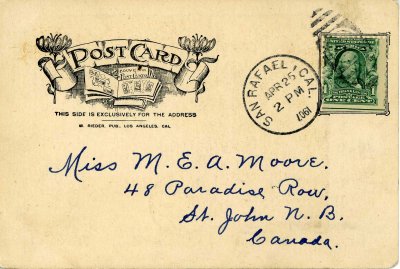 POST CARD
THIS SIDE IS EXCLUSIVELY FOR THE ADDRESS
M. RIEDER, PUB., LOS ANGELES, CAL
SAN RAFAEL, CAL.
APR 25
2 PM
1907
Miss M. E. A. Moore.
48 Paradise Row,
St. John N. B.
Canada.